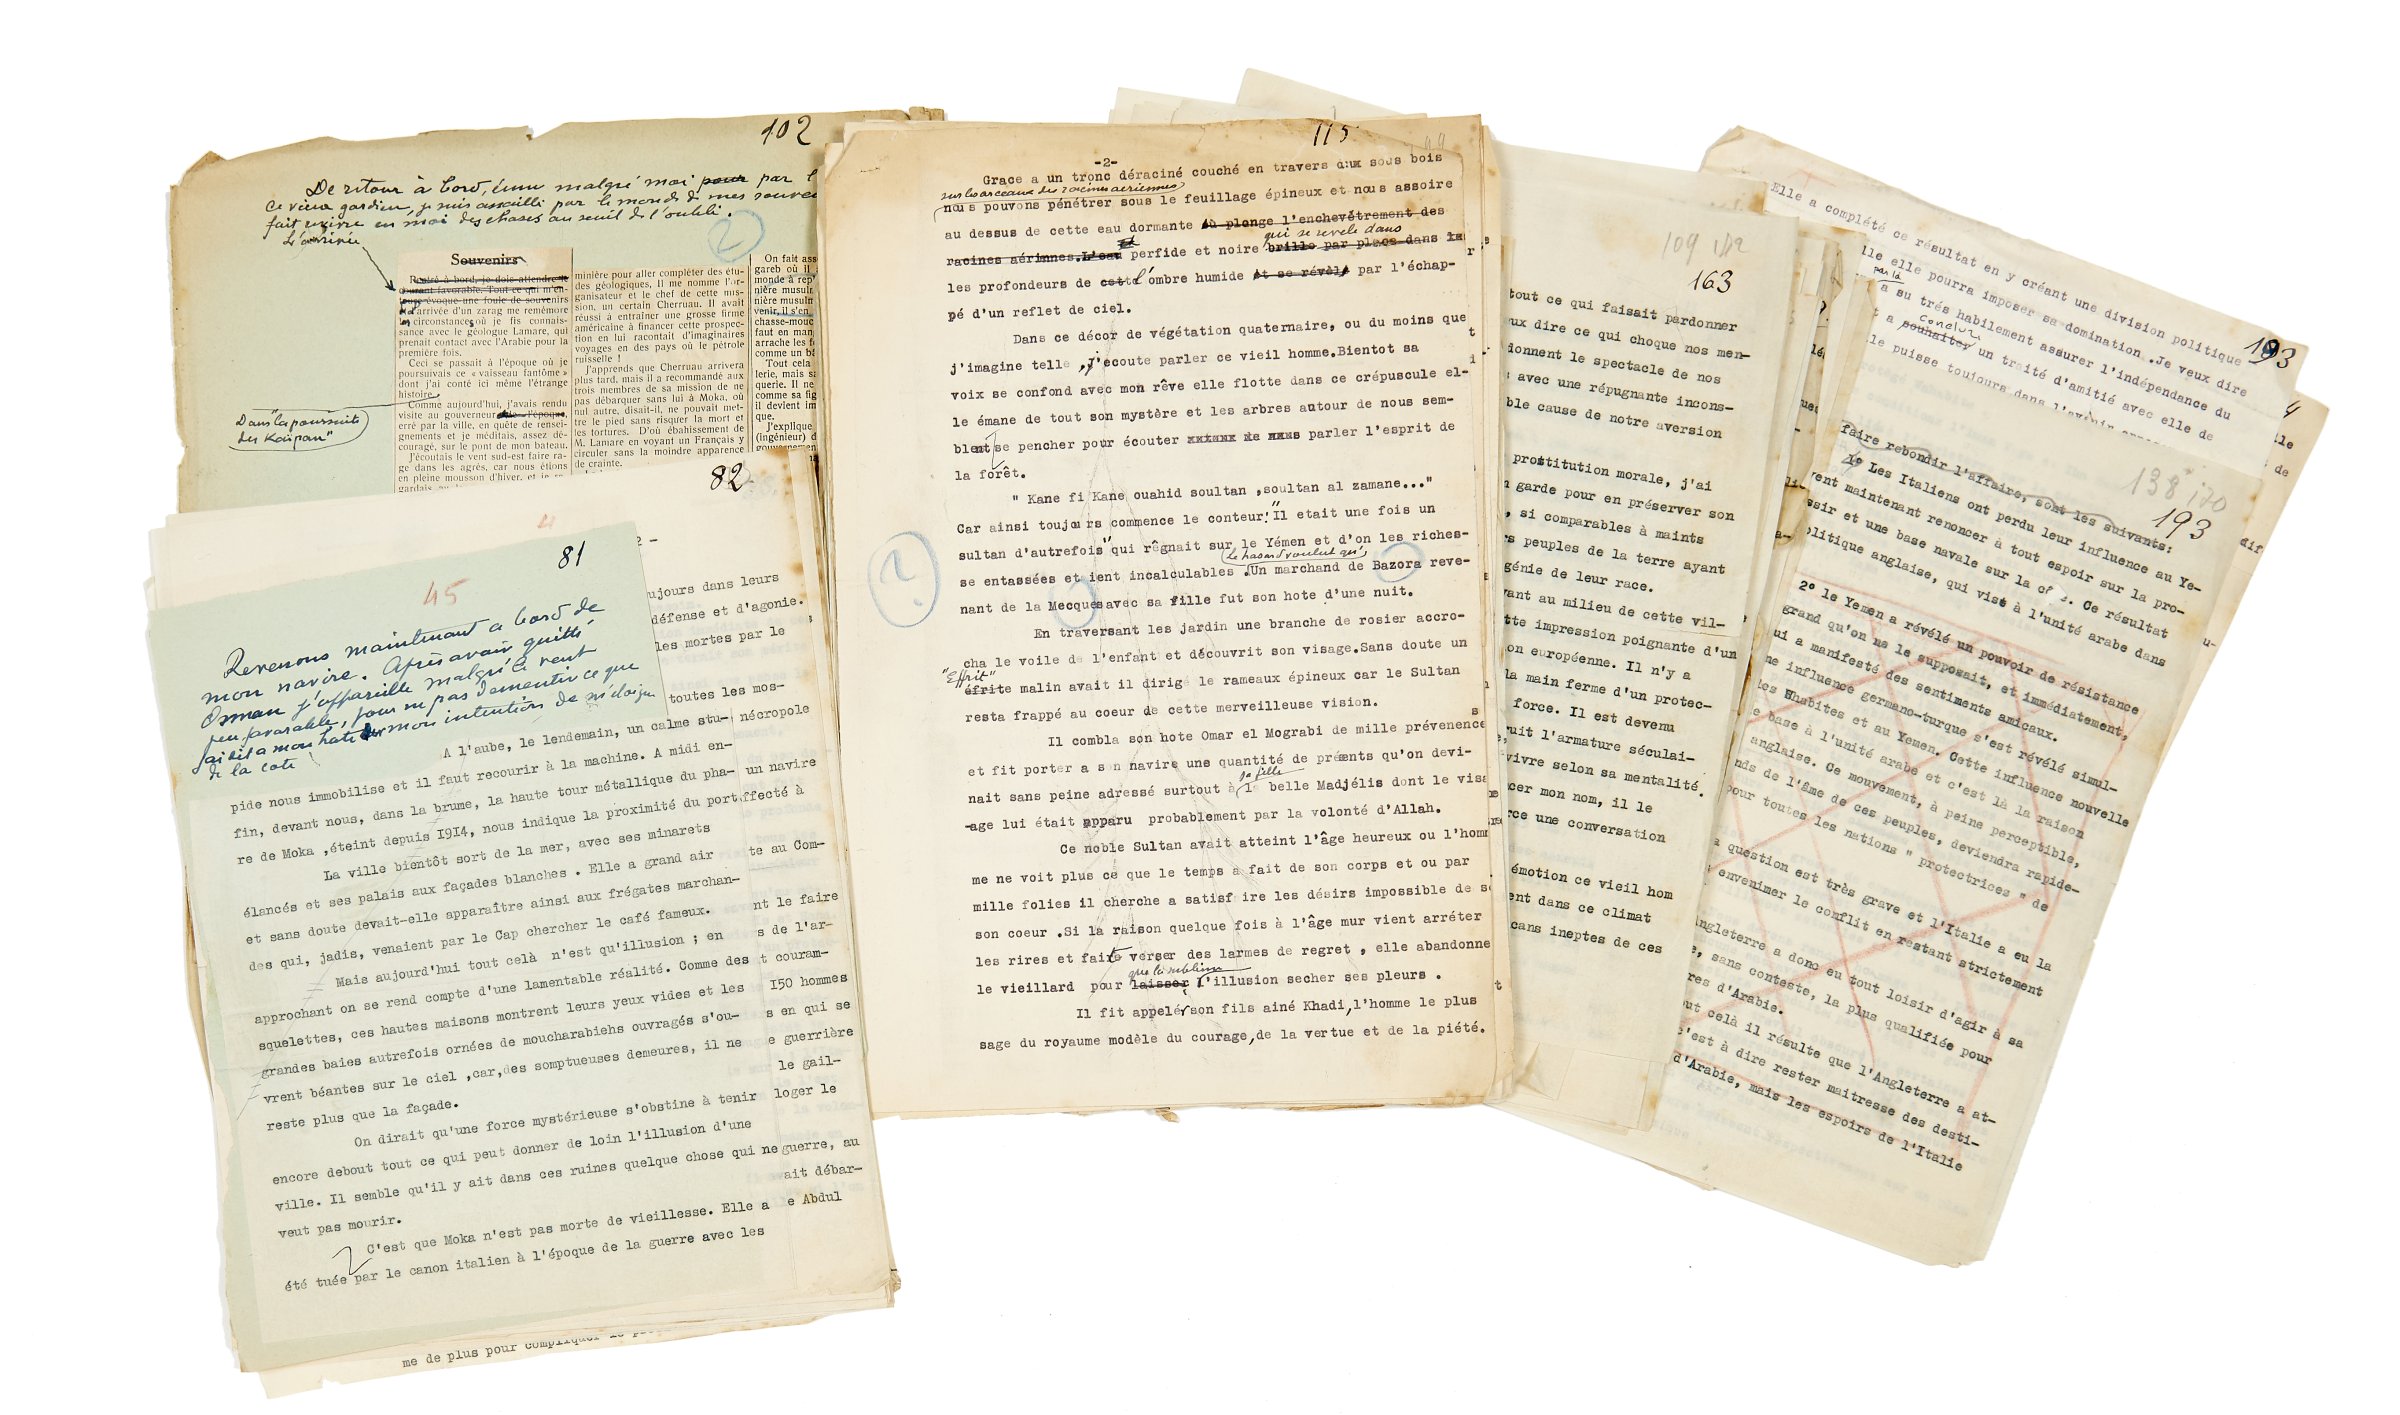 102
De retour à bord, ému malgré moi pour par
ce vieux gardien, je suis assailli par le monde de mes souve
fait revivre en moi des choses au seuil de l'oubli.
L'arrivée
2
Souvenirs
Rentré à bord, je dois attendre le
courant favorable. Tout ce qui m'en-
toure évoque une foule de souvenirs
l'arrivée d'un zarag me remémore
les circonstances où je fis connais-
sance avec le géologue Lamare, qui
prenait contact avec l'Arabie pour la
première fois.
Ceci se passait à l'époque où je
poursuivais ce « vaisseau fantôme »
dont j'ai conté ici même l'étrange
histoire.
Dans "la poursuite
du Kaïpan"
Comme aujourd'hui, j'avais rendu
visite au gouverneur de l'époque,
erré par la ville, en quête de rensei-
gnements et je méditais, assez dé-
couragé, sur le pont de mon bateau.
J'écoutais le vent sud-est faire ra-
ge dans les agrès, car nous étions
en pleine mousson d'hiver, et je re-
gardais
minière pour aller compléter des étu-
des géologiques. Il me nomme l'or-
ganisateur et le chef de cette mis-
sion, un certain Cherruau. Il avait
réussi à entraîner une grosse firme
américaine à financer cette prospec-
tion en lui racontant d'imaginaires
voyages en des pays où le pétrole
ruisselle !
J'apprends que Cherruau arrivera
plus tard, mais il a recommandé aux
trois membres de sa mission de ne
pas débarquer sans lui à Moka, où
nul autre, disait-il, ne pouvait met-
tre le pied sans risquer la mort et
les tortures. D'où ébahissement de
M. Lamare en voyant un Français y
circuler sans la moindre apparence
de crainte.
On fait ass
gareb où il
monde à rep
nière musulm
nière musulm
venir, il s'en
chasse-mouc
faut en man
arrache les f
comme un bâ
Tout cela
lerie, mais sa
querie. Il ne
comme sa fig
il devient im
que.
J'explique
(ingénieur) d
gouvernement
82
2 -
ujours dans leurs
défense et d'agonie.
les mortes par le
toutes les mos-
nécropole
un navire
ffecté à
te au Com-
nt le faire
s de l'ar-
t couram-
150 hommes
s en qui se
e guerrière
le gail-
loger le
guerre, au
ait débar-
e Abdul
81
45
Revenons maintenant a bord de
mon navire. Après avoir quitté
Osman j'appareille malgré le vent
peu favorable, pour ne pas démentir ce que
j'ai dit a mon hote sur mon intention de m'éloigner
de la cote
A l'aube, le lendemain, un calme stu-
pide nous immobilise et il faut recourir à la machine. A midi en-
fin, devant nous, dans la brume, la haute tour métallique du pha-
re de Moka ,éteint depuis 1914, nous indique la proximité du port
La ville bientôt sort de la mer, avec ses minarets
élancés et ses palais aux façades blanches . Elle a grand air
et sans doute devait-elle apparaître ainsi aux frégates marchan-
des qui, jadis, venaient par le Cap chercher le café fameux.
Mais aujourd'hui tout celà n'est qu'illusion ; en
approchant on se rend compte d'une lamentable réalité. Comme des
squelettes, ces hautes maisons montrent leurs yeux vides et les
grandes baies autrefois ornées de moucharabiehs ouvragés s'ou-
vrent béantes sur le ciel ,car,des somptueuses demeures, il ne
reste plus que la façade.
On dirait qu'une force mystérieuse s'obstine à tenir
encore debout tout ce qui peut donner de loin l'illusion d'une
ville. Il semble qu'il y ait dans ces ruines quelque chose qui ne
veut pas mourir.
C'est que Moka n'est pas morte de vieillesse. Elle a
été tuée par le canon italien à l'époque de la guerre avec les
me de plus pour compliquer le
115
-2-
Grace a un tronc déraciné couché en travers dux sous bois
sur les arceaux des racines aeriennes
nous pouvons pénétrer sous le feuillage épineux et nous assoire
au dessus de cette eau dormante où plonge l'enchevétrement des
qui se revele dans
racines aériennes.L'eau et perfide et noire brille par place dans la
les profondeurs de cette l'ombre humide et se révèle par l'échap-
pé d'un reflet de ciel.
Dans ce décor de végétation quaternaire, ou du moins que
j'imagine telle ,j'ecoute parler ce vieil homme.Bientot sa
voix se confond avec mon rêve elle flotte dans ce crépuscule el-
le émane de tout son mystère et les arbres autour de nous sem-
blent se pencher pour écouter parler l'esprit de
la forêt.
" Kane fi Kane ouahid soultan ,soultan al zamane..."
Car ainsi toujours commence le conteur:"Il etait une fois un
sultan d'autrefois"qui rêgnait sur le Yémen et d'on les riches-
le hasard voulut qu'
se entassées et ient incalculables .Un marchand de Bazora reve-
nant de la Mecques avec sa fille fut son hote d'une nuit.
?
En traversant les jardin une branche de rosier accro-
cha le voile de l'enfant et découvrit son visage.Sans doute un
"Effrit"
éfrite malin avait il dirigé le rameaux épineux car le Sultan
resta frappé au coeur de cette merveilleuse vision.
Il combla son hote Omar el Mograbi de mille prévenence
et fit porter a son navire une quantité de présents qu'on devi-
sa fille
nait sans peine adressé surtout à la belle Madjélis dont le visa
-age lui était apparu probablement par la volonté d'Allah.
Ce noble Sultan avait atteint l'âge heureux ou l'homm
me ne voit plus ce que le temps a fait de son corps et ou par
mille folies il cherche a satisf ire les désirs impossible de s
son coeur .Si la raison quelque fois à l'âge mur vient arréter
les rires et faire verser des larmes de regret , elle abandonne
que la sublime
le vieillard pour laisser l'illusion secher ses pleurs .
Il fit appeler son fils ainé Khadi,l'homme le plus
sage du royaume modèle du courage,de la vertue et de la piété.
109
163
tout ce qui faisait pardonner
ux dire ce qui choque nos men-
donnent le spectacle de nos
avec une répugnance incons-
ble cause de notre aversion
prostitution morale, j'ai
garde pour en préserver son
, si comparables à maints
s peuples de la terre ayant
génie de leur race.
vant au milieu de cette vil-
tte impression poignante d'un
on européenne. Il n'y a
la main ferme d'un protec-
force. Il est devenu
ruit l'armature séculai-
vivre selon sa mentalité.
cer mon nom, il le
rce une conversation
émotion ce vieil hom
ent dans ce climat
cans ineptes de ces
193
Elle a complété ce résultat en y créant une division politique
lle elle pourra imposer sa domination .Je veux dire
par là
a su trés habilement assurer l'indépendance du
conclur
t a souhaiter un traité d'amitié avec elle de
le puisse toujours dans l'avenir
138 170
193
faire rebondir l'affaire, sont les suivants:
1° Les Italiens ont perdu leur influence au Ye-
vent maintenant renoncer à tout espoir sur la pro-
ssir et une base navale sur la . Ce résultat
olitique anglaise, qui vise à l'unité arabe dans
2° le Yemen a révélé un pouvoir de résistance
grand qu'on ne le supposait, et immédiatement,
ui a manifesté des sentiments amicaux.
ne influence germano-turque s'est révélé simul-
les Whabites et au Yemen. Cette influence nouvelle
e base à l'unité arabe et c'est là la raison
anglaise. Ce mouvement, à peine perceptible,
nds de l'âme de ces peuples, deviendra rapide-
pour toutes les nations " protectrices " de
question est très grave et l'Italie a eu la
envenimer le conflit en restant strictement
ngleterre a donc eu tout loisir d'agir à sa
e, sans conteste, la plus qualifiée pour
res d'Arabie.
out celà il résulte que l'Angleterre a at-
c'est à dire rester maitresse des desti-
d'Arabie, mais les espoirs de l'Italie